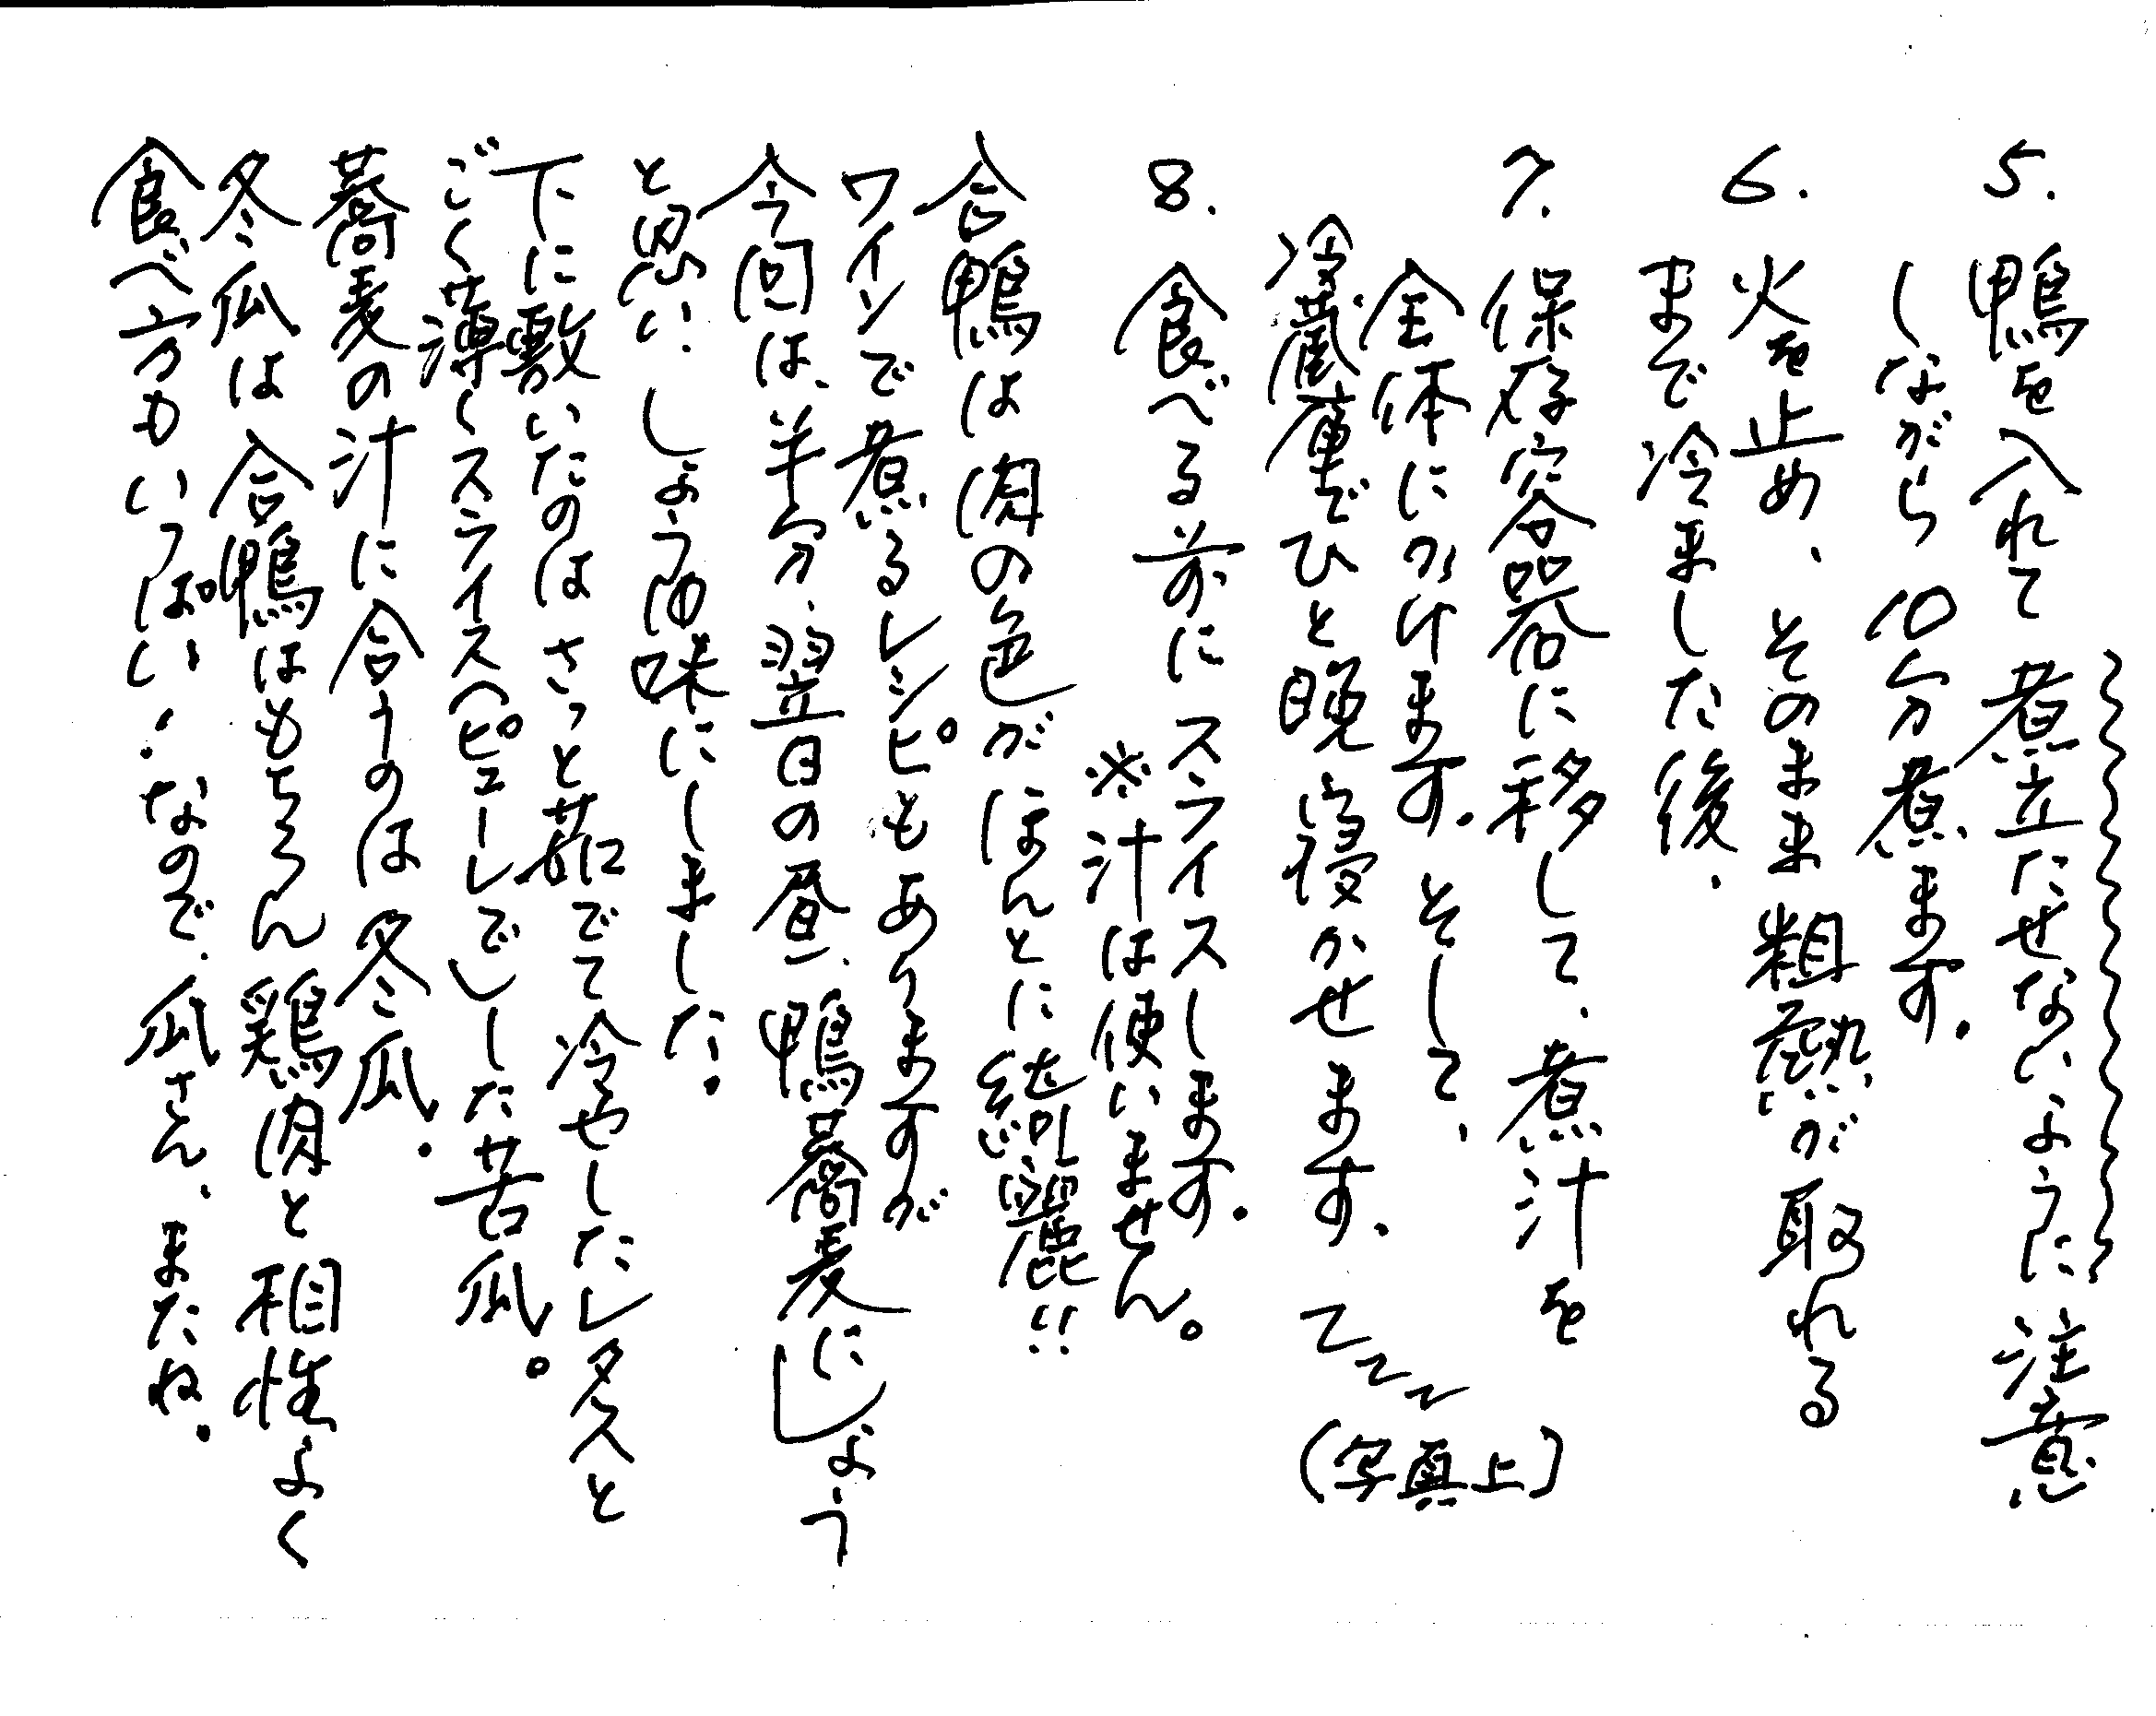 5. 鴨を入れて煮立たせないように注意
しながら10分煮ます。
6. 火を止め、そのまま粗熱が取れる
まで冷ました後、
7. 保存容器に移して、煮汁を
全体にかけます。そして、
冷蔵庫でひと晩寝かせます。
(写真上)
8. 食べる前にスライスします。
※汁は使いません。
合鴨は肉の色がほんとに綺麗!!
ワインで煮るレシピもありますが
今回は、半分、翌日の昼、鴨蕎麦にしよう
と思い、しょうゆ味にしました。
下に敷いたのはさっと茹でて冷やしたレタスと
ごく薄くスライスへピューしでしした苦瓜。
蕎麦の汁に合うのは冬瓜。
冬瓜は合鴨はもちろん鶏肉と相性よく
食べ方もいっぱい!なので、瓜さん、またね。